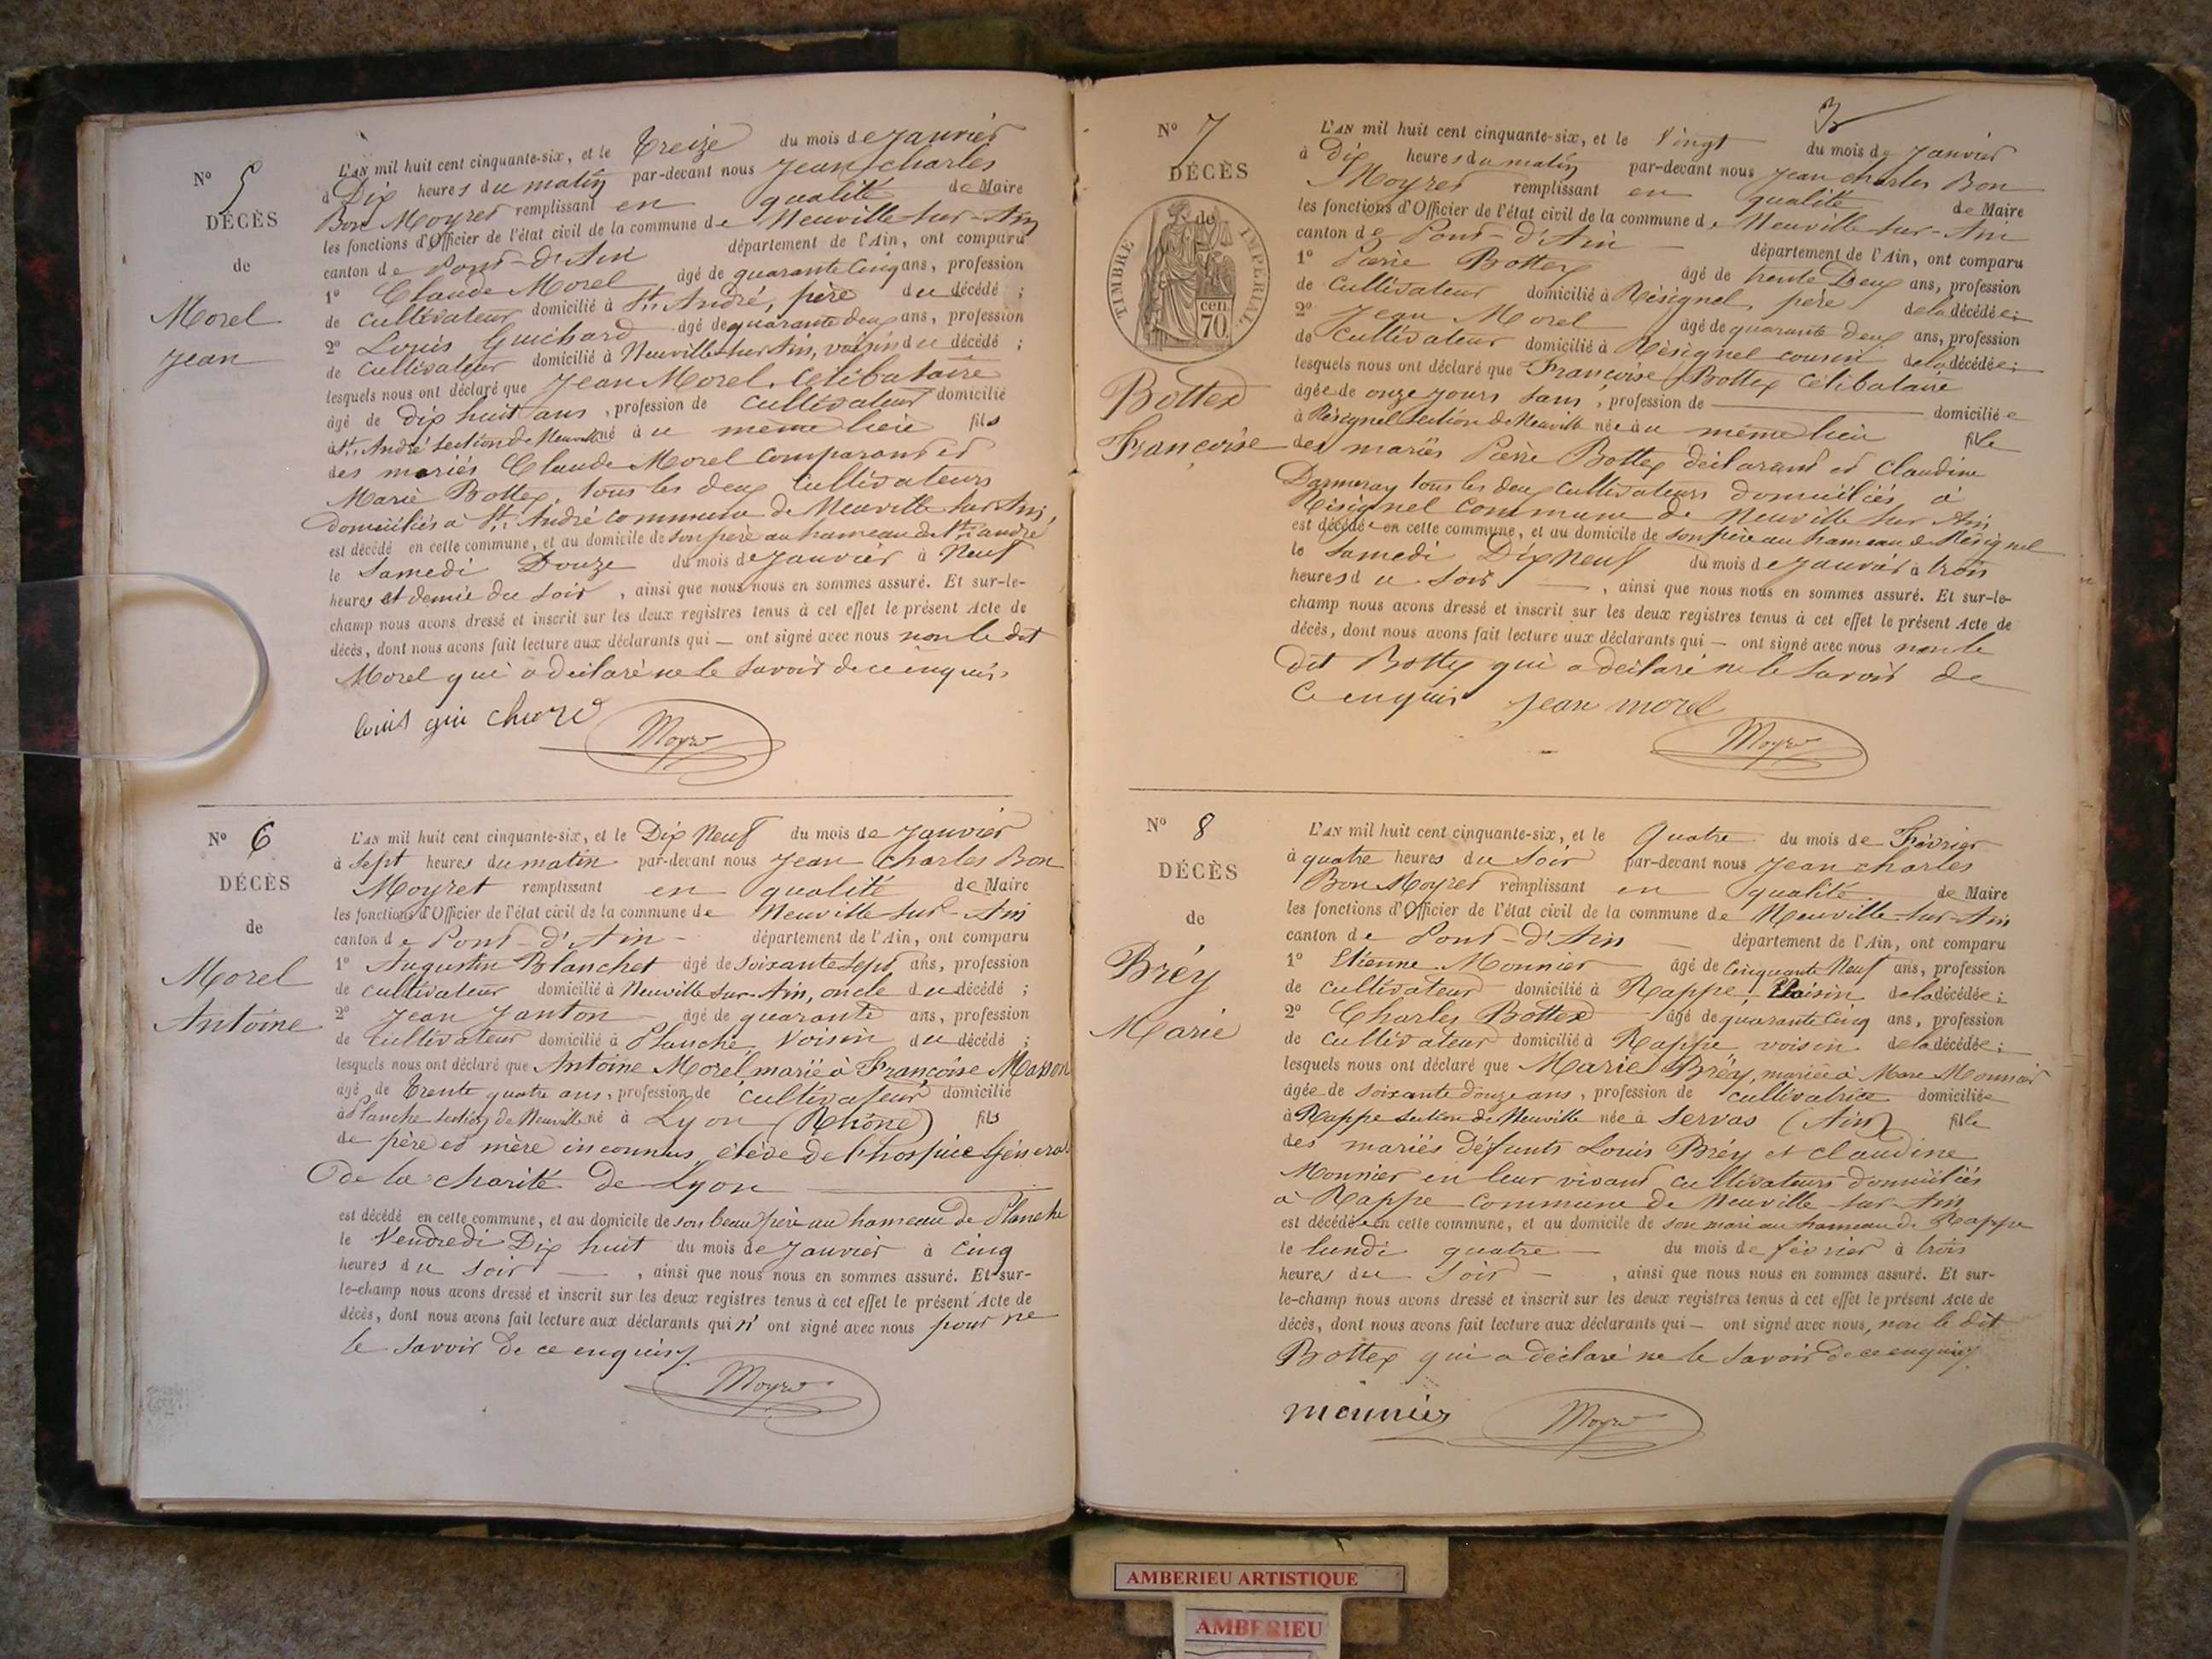 N° 5
DÉCÈS
de
Morel
Jean
L'AN mil huit cent cinquante-six, et le Treize du mois de Janvier
à Dix heures du matin par-devant nous Jean Charles
Bon Moyret remplissant en qualité de Maire
les fonctions d'Officier de l'état civil de la commune de Neuville-sur-Ain
canton de Pont-d'Ain département de l'Ain, ont comparu
1° Claude Morel âgé de quarante Cinq ans, profession
de Cultivateur domicilié à St. André, père du décédé ;
2° Louis Guichard âgé de quarante deux ans, profession
de Cultivateur domicilié à Neuville-sur-Ain, voisin du décédé ;
lesquels nous ont déclaré que Jean Morel, Célibataire
âgé de dix huit ans, profession de Cultivateur domicilié
à St. André section de Neuville né au même lieu fils
des mariés Claude Morel Comparant et
Marie Bottex, tous les deux Cultivateurs
domiciliés à St. André commune de Neuville sur Ain,
est décédé en cette commune, et au domicile de son père au hameau de St. André
le Samedi Douze du mois de Janvier à Neuf
heures et demie du soir, ainsi que nous nous en sommes assuré. Et sur-le-
champ nous avons dressé et inscrit sur les deux registres tenus à cet effet le présent Acte de
décès, dont nous avons fait lecture aux déclarants qui — ont signé avec nous non le dit
Morel qui a déclaré ne le savoir de ce enquis
Louis gui chard Moyret
N° 6
DÉCÈS
de
Morel
Antoine
L'AN mil huit cent cinquante-six, et le Dix Neuf du mois de Janvier
à Sept heures du matin par-devant nous Jean Charles Bon
Moyret remplissant en qualité de Maire
les fonctions d'Officier de l'état civil de la commune de Neuville-sur-Ain
canton de Pont-d'Ain - département de l'Ain, ont comparu
1° Augustin Blanchet âgé de soixante sept ans, profession
de cultivateur domicilié à Neuville-sur-Ain, oncle du décédé ;
2° Jean Janton âgé de quarante ans, profession
de Cultivateur domicilié à Planche, Voisin du décédé ;
lesquels nous ont déclaré que Antoine Morel marié à Françoise Masson
âgé de Trente quatre ans, profession de Cultivateur domicilié
à Planche section de Neuville né à Lyon (Rhône) fils
de père et mère inconnus, élève de l'hospice Général
de la charité de Lyon
est décédé en cette commune, et au domicile de son beau père au hameau de Planche
le Vendredi Dix huit du mois de Janvier à Cinq
heures du soir —, ainsi que nous nous en sommes assuré. Et sur-
le-champ nous avons dressé et inscrit sur les deux registres tenus à cet effet le présent Acte de
décès, dont nous avons fait lecture aux déclarants qui n' ont signé avec nous pour ne
le savoir de ce enquis
Moyret
N° 7
DÉCÈS
de
TIMBRE IMPÉRIAL
70 cen.
Bottex
Françoise
L'AN mil huit cent cinquante-six, et le Vingt du mois de Janvier
à Dix heures du matin par-devant nous Jean Charles Bon
Moyret remplissant en qualité de Maire
les fonctions d'Officier de l'état civil de la commune de Neuville-sur-Ain
canton de Pont-d'Ain département de l'Ain, ont comparu
1° Pierre Bottex âgé de trente Deux ans, profession
de Cultivateur domicilié à Résignel, père de la décédée ;
2° Jean Morel âgé de quarante deux ans, profession
de Cultivateur domicilié à Résignel cousin de la décédée ;
lesquels nous ont déclaré que Françoise Bottex Célibataire
âgée de onze jours sans, profession de — domiciliée
à Résignel section de Neuville née au même lieu fille
des mariés Pierre Bottex déclarant et Claudine
tous les deux cultivateurs domiciliés à
Résignel commune de Neuville sur Ain
est décédée en cette commune, et au domicile de son père au hameau de Résignel
le Samedi Dix neuf du mois de Janvier à trois
heures du soir —, ainsi que nous nous en sommes assuré. Et sur-le-
champ nous avons dressé et inscrit sur les deux registres tenus à cet effet le présent Acte de
décès, dont nous avons fait lecture aux déclarants qui — ont signé avec nous non le
dit Bottex qui a déclaré ne le savoir de
ce enquis Jean morel
Moyret
N° 8
DÉCÈS
de
Bréy
Marie
L'AN mil huit cent cinquante-six, et le Quatre du mois de Février
à quatre heures du Soir par-devant nous Jean Charles
Bon Moyret remplissant en qualité de Maire
les fonctions d'Officier de l'état civil de la commune de Neuville-sur-Ain
canton de Pont-d'Ain département de l'Ain, ont comparu
1° Etienne Monnier âgé de Cinquante Neuf ans, profession
de cultivateur domicilié à Rappe, Voisin de la décédée ;
2° Charles Bottex âgé de quarante Cinq ans, profession
de Cultivateur domicilié à Rappe voisin de la décédée ;
lesquels nous ont déclaré que Marie Bréy, mariée à Marc Monnier
âgée de soixante douze ans, profession de cultivatrice domiciliée
à Rappe section de Neuville née à Servas (Ain) fille
des mariés défunts Louis Bréy et Claudine
Monnier en leur vivant cultivateurs domiciliés
à Rappe commune de Neuville-sur-Ain
est décédée en cette commune, et au domicile de son mari au hameau de Rappe
le lundi quatre du mois de février à trois
heures du Soir —, ainsi que nous nous en sommes assuré. Et sur-
le-champ nous avons dressé et inscrit sur les deux registres tenus à cet effet le présent Acte de
décès, dont nous avons fait lecture aux déclarants qui — ont signé avec nous, non le dit
Bottex qui a déclaré ne le savoir de ce enquis
monnier Moyret
AMBERIEU ARTISTIQUE
AMBERIEU